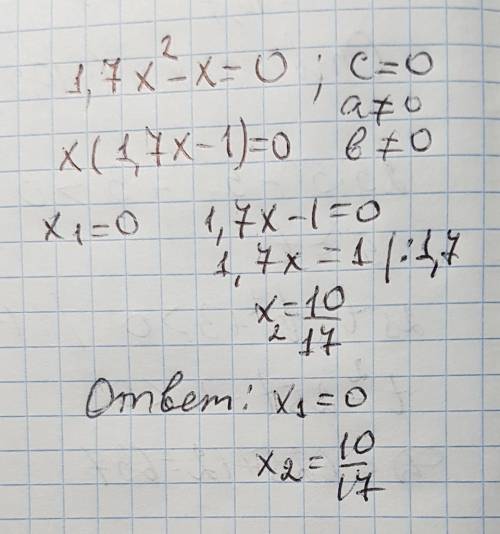 1,7x² - x = 0 ; c = 0
a ≠ 0
x(1,7x - 1) = 0 в ≠ 0
x₁ = 0 1,7x - 1 = 0
1,7x = 1 |:1,7
x₂ = 10/17
Ответ: x₁ = 0
x₂ = 10/17